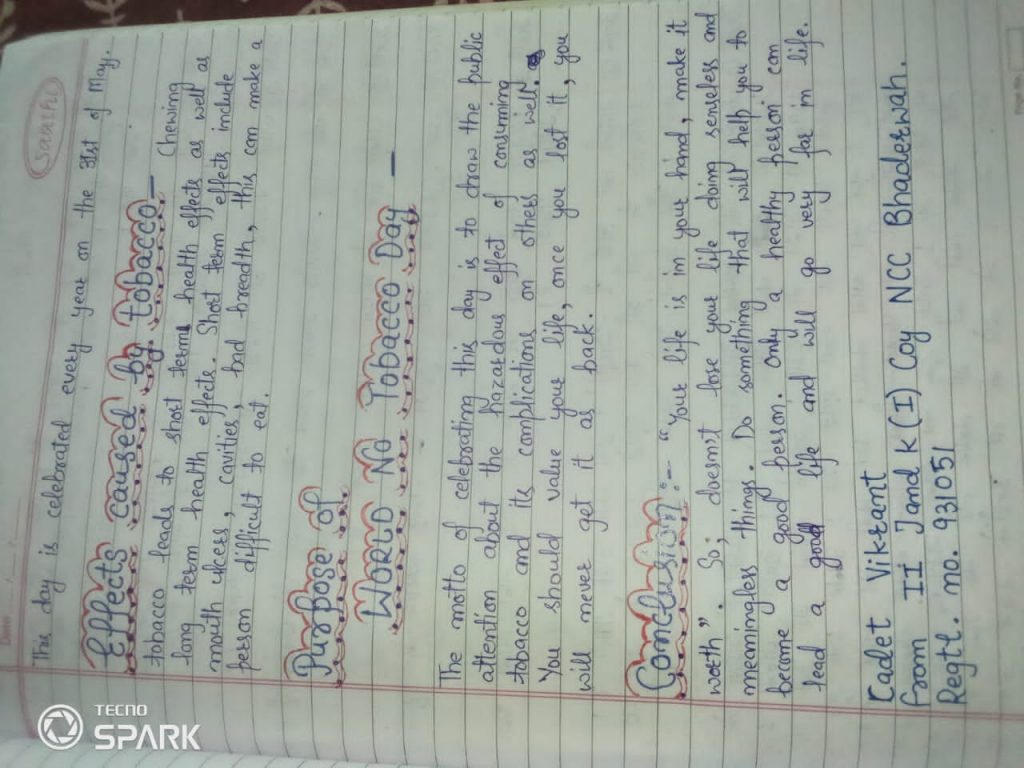 Saathi
This day is celebrated every year on the 31st of May.
Effects caused by tobacco - Chewing
tobacco leads to short term health effects as well as
long term health effects. Short term effects include
mouth ulcers, cavities, bad breadth, this can make a
person difficult to eat.
Purpose of
World No Tobacco Day -
The motto of celebrating this day is to draw the public
attention about the hazardous effect of consuming
tobacco and its complications on others as well.
You should value your life, once you lost it, you
will never get it as back.
Conclusion:- "Your life is in your hand, make it
worth". So, doesnt lose your life doing senseless and
meaningless things. Do something that will help you to
become a good person. Only a healthy person can
lead a good life and will go very far in life.
Cadet Vikrant
from II J and K (I) Coy NCC Bhaderwah.
Regtl. no. 931051
TECNO
SPARK